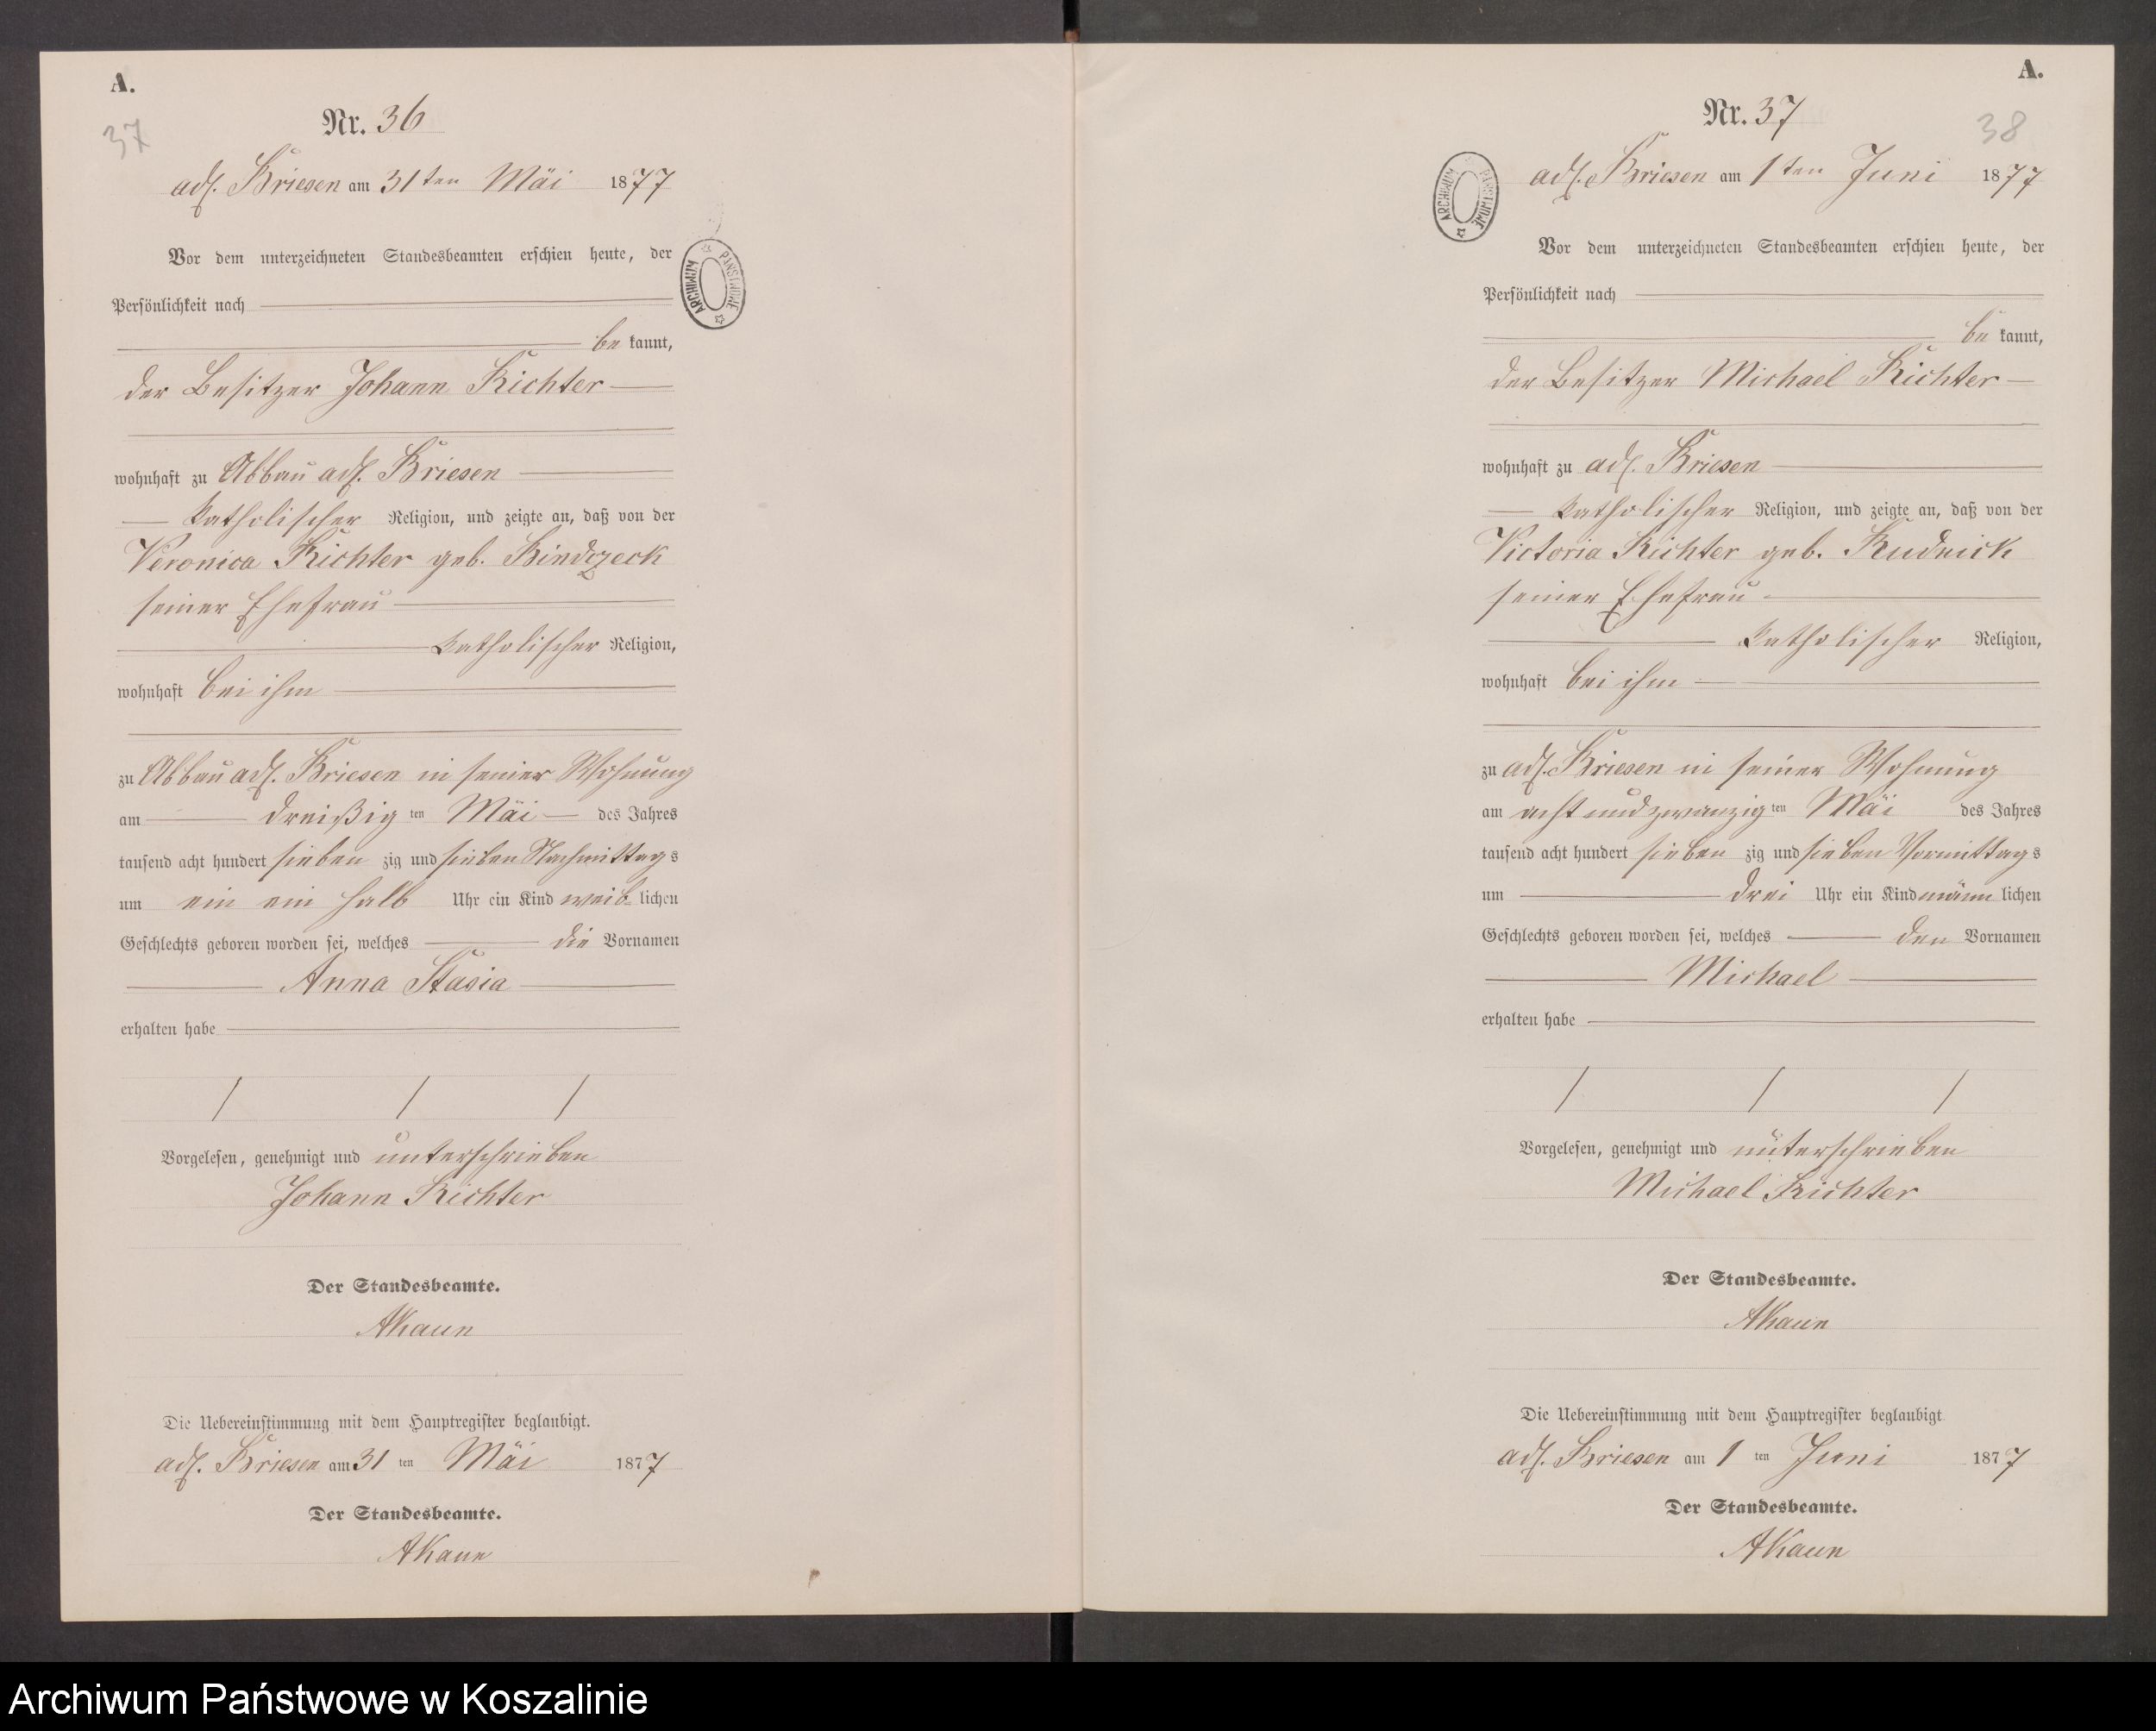 A.
37
Nr. 36
adl. Briesen am 31ten Mai 1877
Vor dem unterzeichneten Standesbeamten erschien heute, der
Persönlichkeit nach
be kannt,
der Besitzer Johann Richter
wohnhaft zu Abbau adl. Briesen
katholischer Religion, und zeigte an, daß von der
Veronica Richter geb. Bindczeck
seiner Ehefrau
katholischer Religion,
wohnhaft bei ihm
zu Abbau adl. Briesen in seiner Wohnung
am dreißig ten Mai des Jahres
tausend acht hundert sieben zig und sieben Nachmittags
um ein ein halb Uhr ein Kind weib lichen
Geschlechts geboren worden sei, welches die Vornamen
Anna Stasia
erhalten habe
Vorgelesen, genehmigt und unterschrieben
Johann Richter
Der Standesbeamte.
AKaun
Die Uebereinstimmung mit dem Hauptregister beglaubigt.
adl. Briesen am 31 ten Mai 1877
Der Standesbeamte.
AKaun
ARCHIWUM PAŃSTWOWE
A.
38
Nr. 37
adl. Briesen am 1ten Juni 1877
ARCHIWUM PAŃSTWOWE
Vor dem unterzeichneten Standesbeamten erschien heute, der
Persönlichkeit nach
be kannt,
der Besitzer Michael Richter
wohnhaft zu adl. Briesen
katholischer Religion, und zeigte an, daß von der
Victoria Richter geb. Rudnick
seiner Ehefrau
katholischer Religion,
wohnhaft bei ihm
zu adl. Briesen in seiner Wohnung
am acht und zwanzig ten Mai des Jahres
tausend acht hundert sieben zig und sieben Vormittags
um drei Uhr ein Kind männ lichen
Geschlechts geboren worden sei, welches den Vornamen
Michael
erhalten habe
Vorgelesen, genehmigt und unterschrieben
Michael Richter
Der Standesbeamte.
AKaun
Die Uebereinstimmung mit dem Hauptregister beglaubigt.
adl. Briesen am 1 ten Juni 1877
Der Standesbeamte.
AKaun
Archiwum Państwowe w Koszalinie